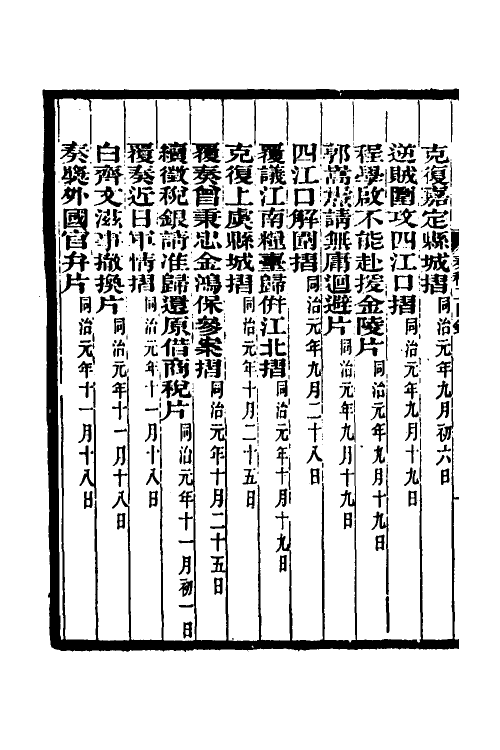 克復嘉定縣城摺同治元年九月初六日
逆賊圍攻四江口摺同治元年九月十九日
程學啟不能赴援金陵片同治元年九月十九日
郭嵩燾請無庸迴避片同治元年九月十九日
四江口解圍摺同治元年九月二十八日
覆議江南糧臺歸併江北摺同治元年十月十九日
克復上虞縣城摺同治元年十月二十五日
覆奏曾秉忠金鴻保參案摺同治元年十月二十五日
續徵稅銀請准歸還原借商稅片同治元年十一月初一日
覆奏近日軍情摺同治元年十一月十八日
白齊文滋事撤換片同治元年十一月十八日
奏獎外國官弁片同治元年十一月十八日